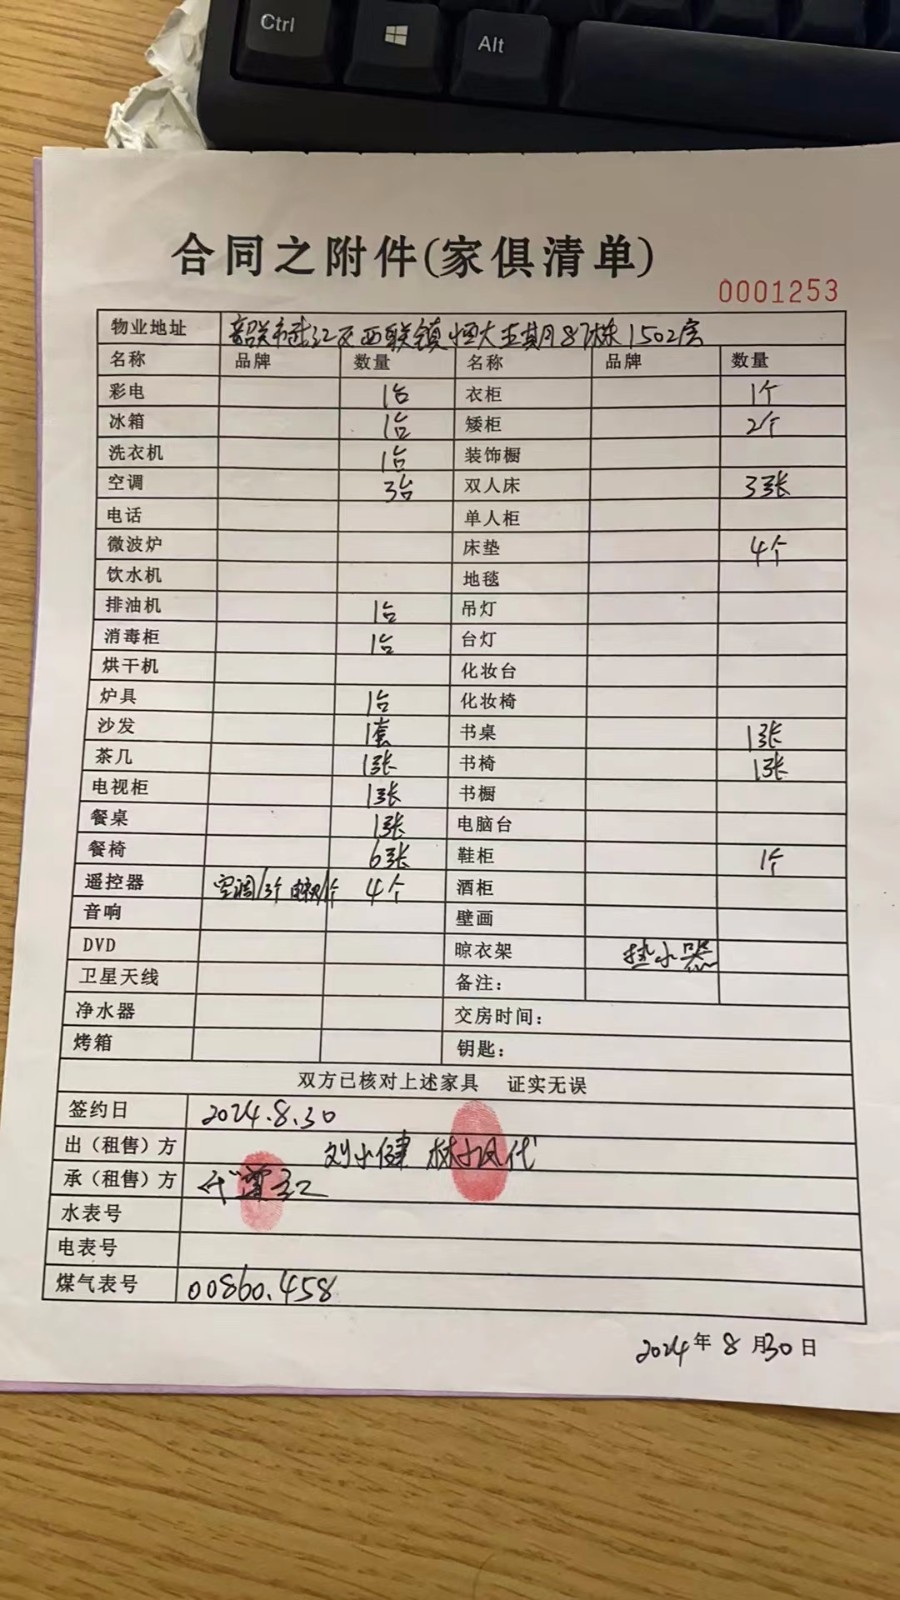 Ctrl
Alt
合同之附件(家俱清单)
0001253
物业地址 韶关市武江区西联镇恒大五期87栋1502房
名称 品牌 数量 名称 品牌 数量
彩电 1台 衣柜 1个
冰箱 1台 矮柜 2个
洗衣机 1台 装饰橱
空调 3台 双人床 3张
电话 单人柜
微波炉 床垫 4个
饮水机 地毯
排油机 1台 吊灯
消毒柜 1台 台灯
烘干机 化妆台
炉具 1台 化妆椅
沙发 1套 书桌 1张
茶几 1张 书椅 1张
电视柜 1张 书橱
餐桌 1张 电脑台
餐椅 6张 鞋柜 1个
遥控器 空调/3个 电视/1个 4个 酒柜
音响 壁画
DVD 晾衣架 热水器
卫星天线 备注:
净水器 交房时间:
烤箱 钥匙:
双方已核对上述家具 证实无误
签约日 2024.8.30
出（租售）方 刘小健 林小凤代
承（租售）方
水表号
电表号
煤气表号 00860.458
2024年8月30日